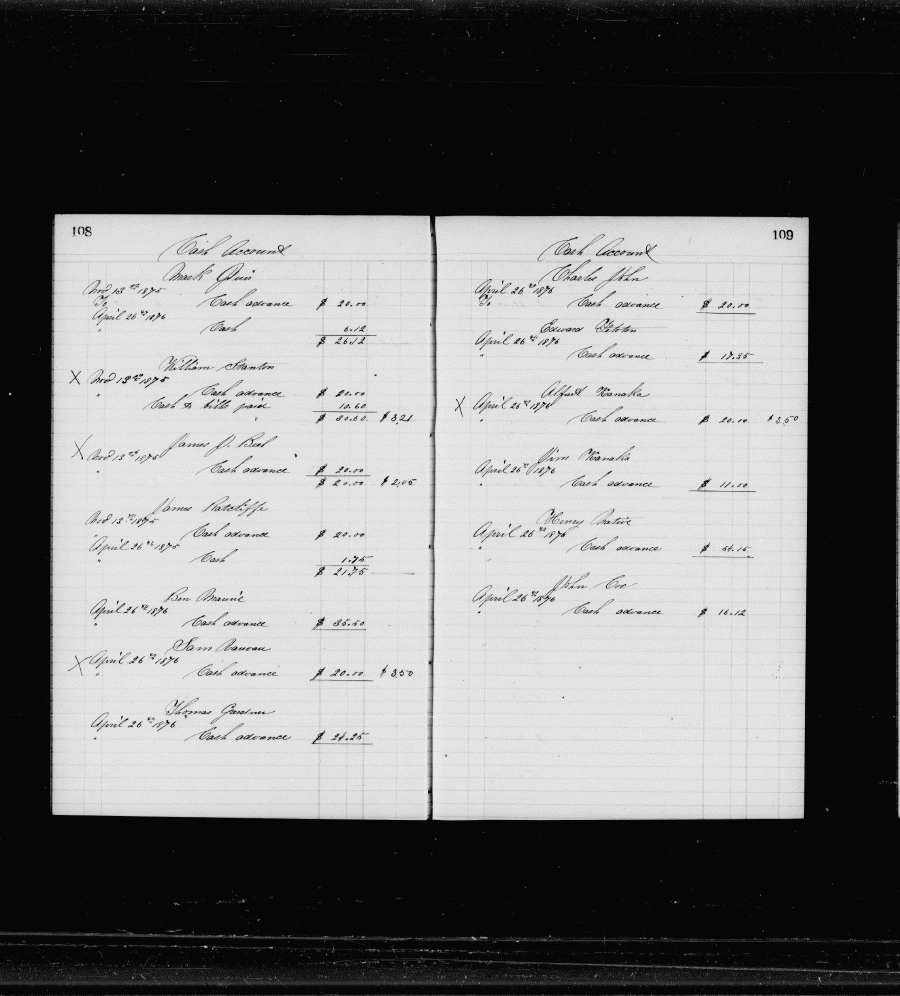 108
Cash Account
Mark
Nov 13th 1875
To Cash advance $ 20.00
April 26th 1876
" Cash 6.12
$ 26.12
William Stanton
X Nov 13th 1875
" Cash advance $ 20.00
Cash & bills paid 10.60
$ 30.60 $ 3.21
James J.
X Nov 13th 1875
Cash advance $ 20.00
$ 20.00 $ 2.05
James Ratcliffe
Nov 13th 1875
" Cash advance $ 20.00
April 26th 1875
" Cash 1.75
$ 21.75
Ben
April 26th 1876
" Cash advance $ 35.50
Sam
X April 26th 1876
" Cash advance $ 20.00 $ 3.50
Thomas Gardner
April 26th 1876
" Cash advance $ 24.25
109
Cash Account
Charles John
April 26th 1876
To Cash advance $ 20.00
Edward
April 26th 1876
" Cash advance $ 17.35
Alfred Kanaka
X April 26th 1876
" Cash advance $ 20.00 $ 3.50
Jim Kanaka
April 26th 1876
" Cash advance $ 11.00
Henry Native
April 26th 1876
" Cash advance $ 54.15
John
April 26th 1876
" Cash advance $ 16.12